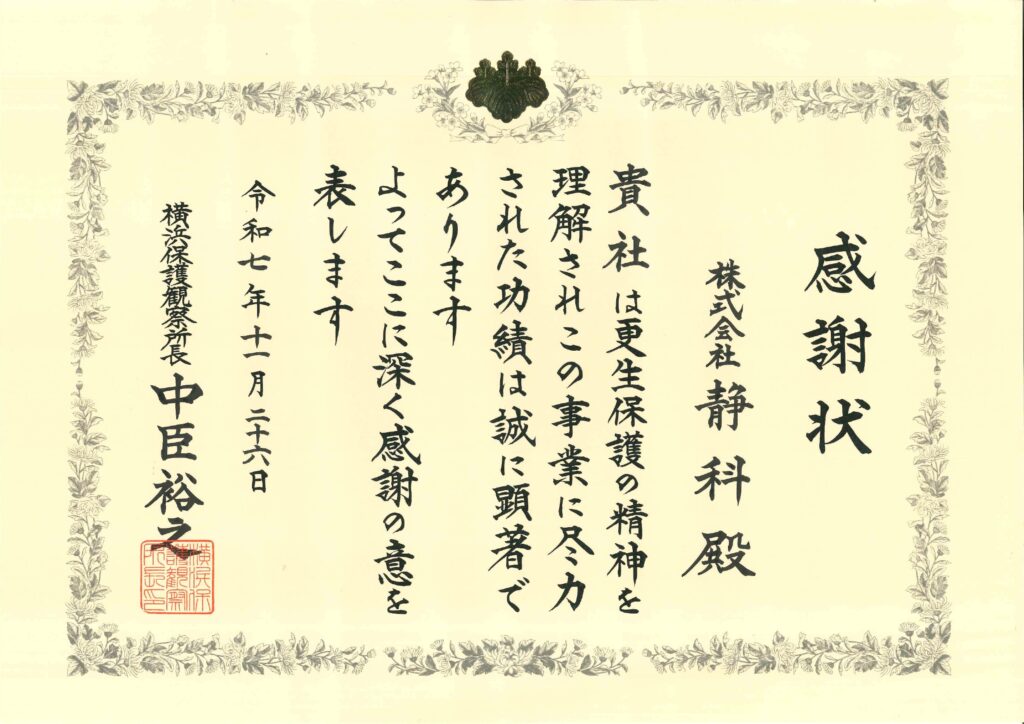 感謝状
株式会社静科殿
貴社は更生保護の精神を
理解されこの事業に尽力
された功績は誠に顕著で
あります
よってここに深く感謝の意を
表します
令和七年十一月二十六日
横浜保護観察所長 中臣裕之
横浜保
護観察
所長印